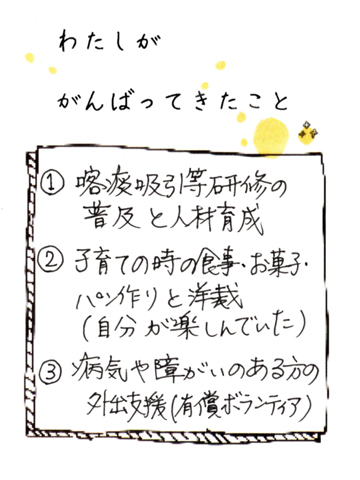 わたしが
がんばってきたこと
① 喀痰吸引等研修の
普及と人材育成
② 子育ての時の食事・お菓子・
パン作りと洋裁
(自分が楽しんでいた)
③ 病気や障がいのある方の
外出支援(有償ボランティア)